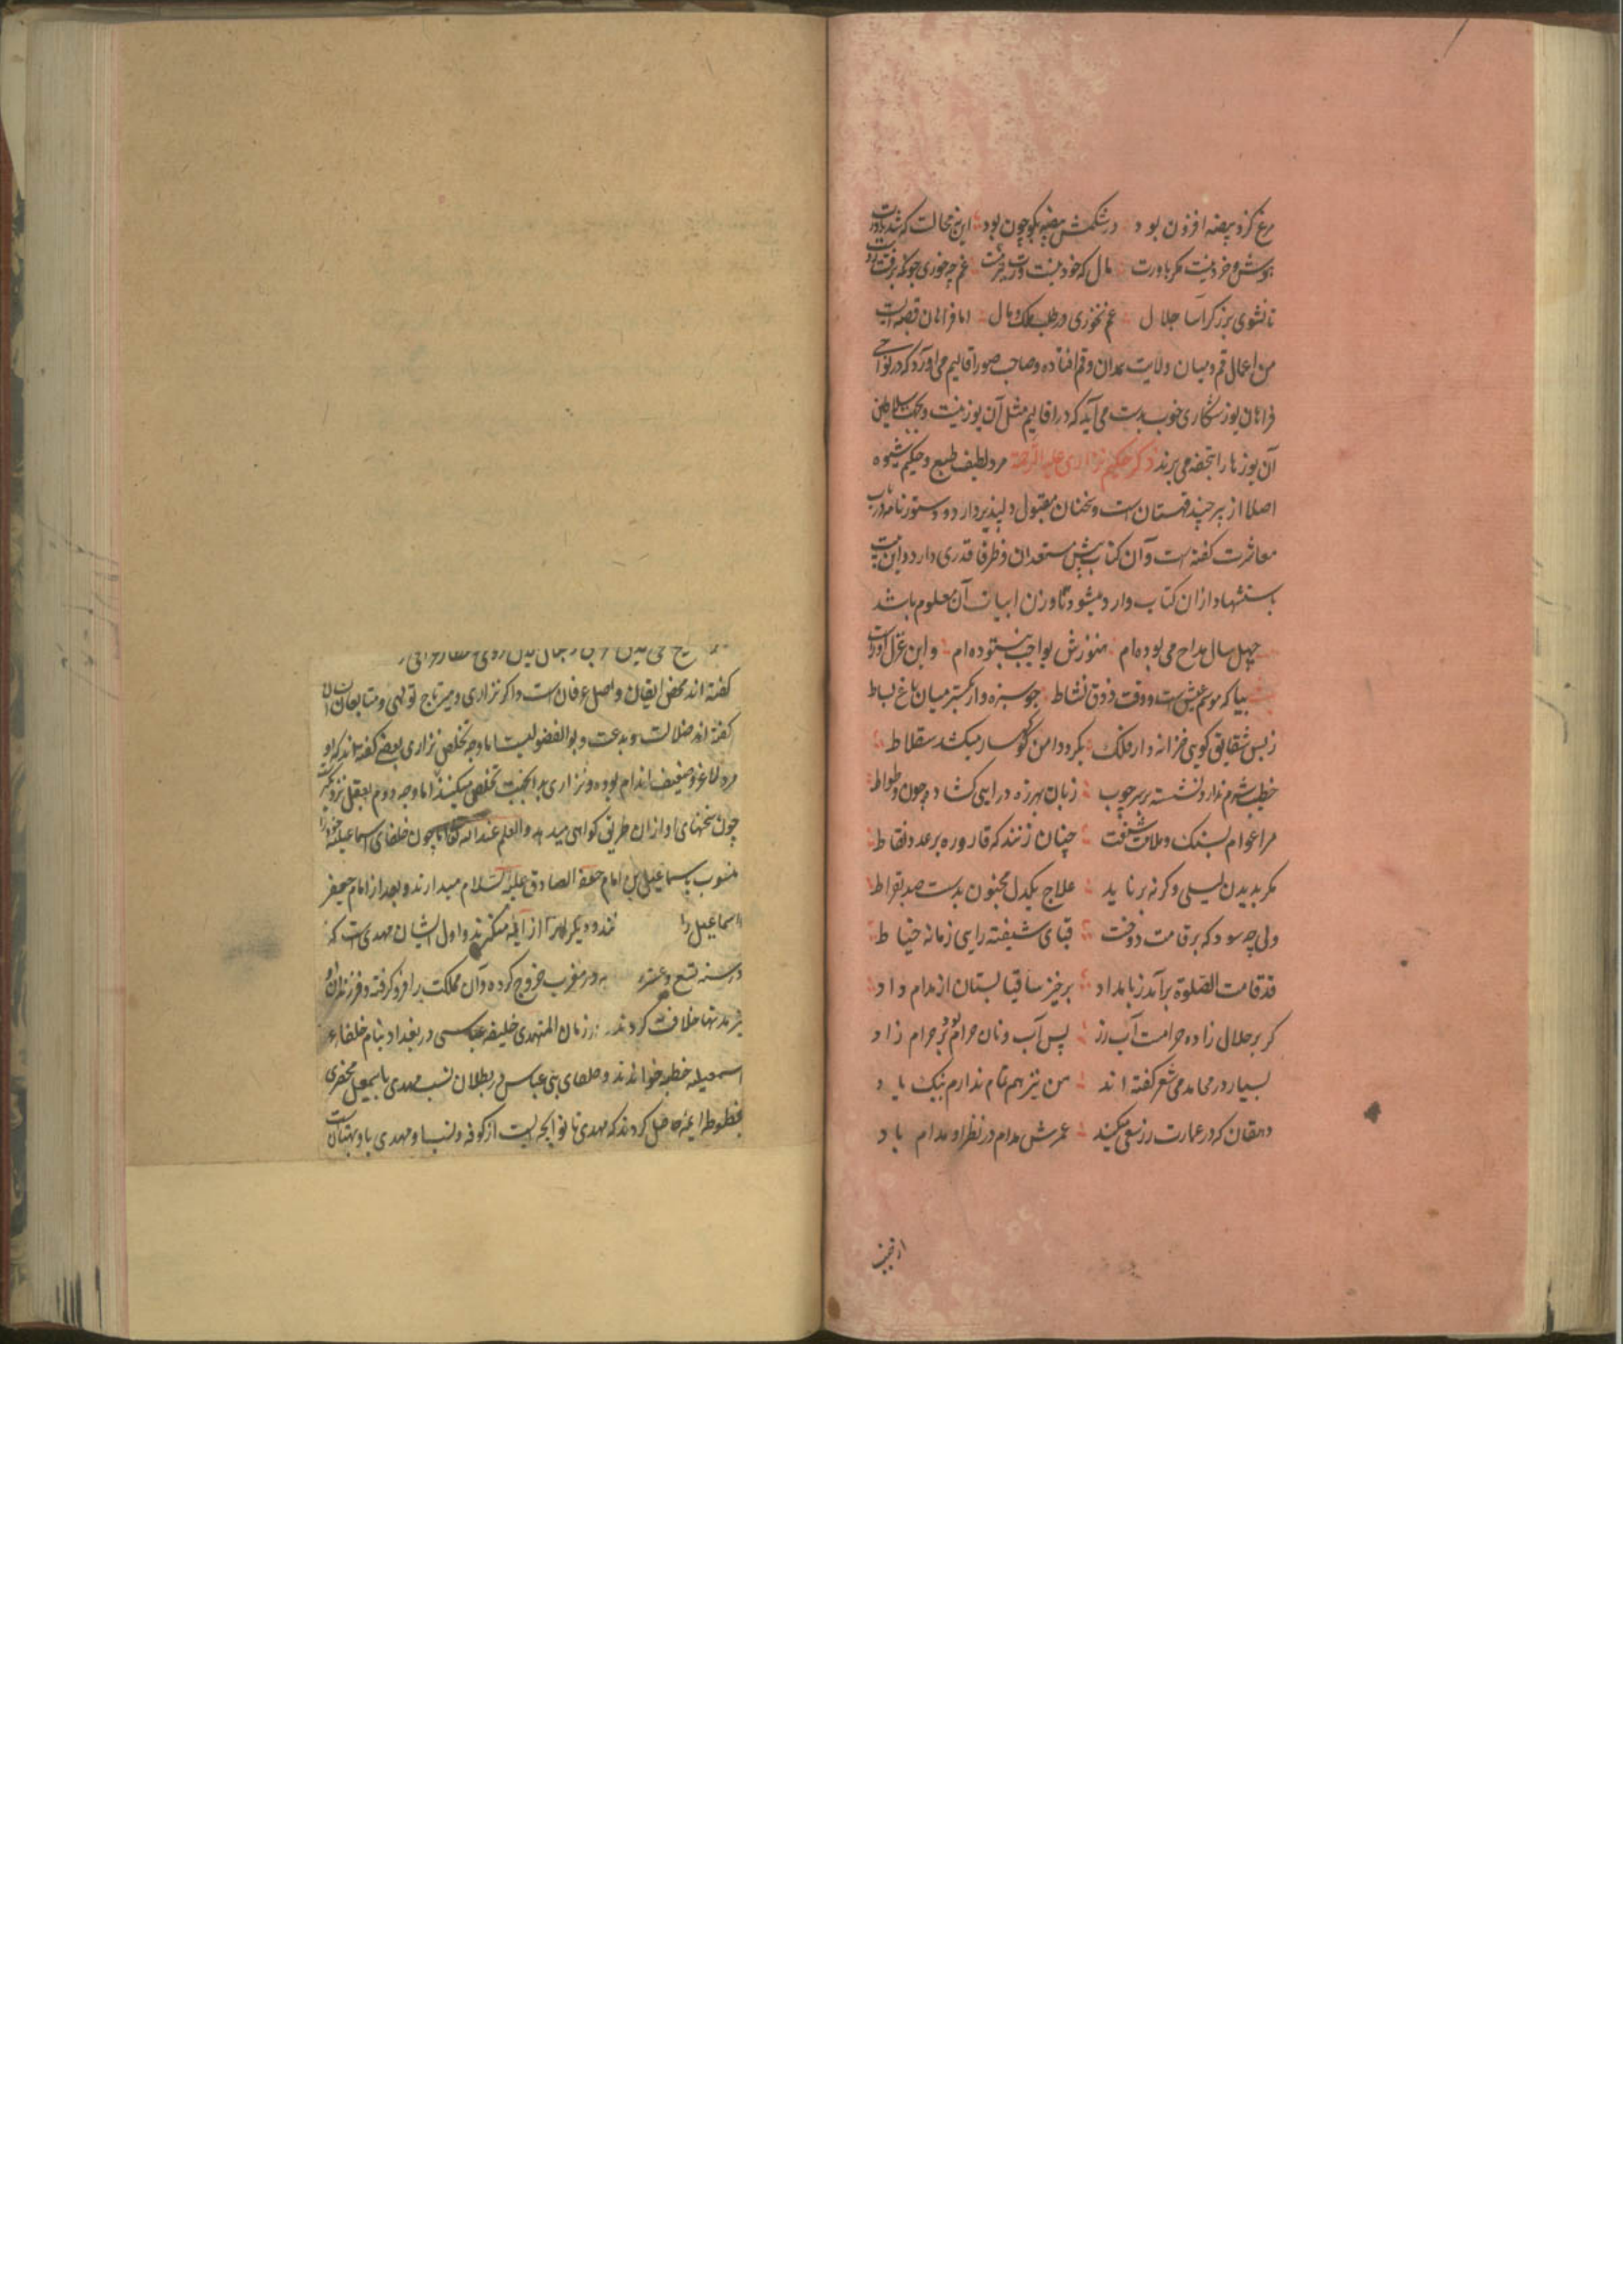 مرغ کزو بیضه افزون بود در شکمش بیضه بکو چون بود این نه محالت که شد باورت
هوش و خرد نیست مکر یاورت مال که خود نیست غم چه خوری چونکه برفت
تا نشوی برزکر آسا جلال غم نخوری در طلب ملک و مال اما فراهان قصبه ایست
من اعمال قم و میان ولایت همدان و قم افتاده و صاحب صور اقالیم می آورد که در نواحی
فراهان یوز شکاری خوب بدست می آید که در اقالیم مثل آن یوز نیست و بجهت سلاطین
آن یوزها را بتحفه می برند ذکر حکیم نزاری علیه الرحمة مرد لطیف طبع و حکیم شیوه
اصلا از بیرجند قهستان است و سخنان مقبول و دلپذیر دارد و دستور نامه در باب
معاشرت کفته است و آن کتاب پیش مستعدان و ظرفا قدری دارد و این بیت
باستشهاد از ان کتاب وارد میشود تا وزن ابیات آن معلوم باشد
چهل سال مداح می بوده ام هنوزش بواجب بنستوده ام و این غزل اوراست
بیا که موسم عیش است و وقت ذوق نشاط چو سبزه وار بکستر میان باغ بساط
ز بس شقایق کویی خزانه دار فلک بکرد دامن کوهسار میکشد سقلاط
خطیب شرم ندارد نشسته بر سر چوب زبان بهرزه درایی کشاده چون وطواط
مرا عوام بسنک و ملامت شنفت چنان زنند که قاروره بر عدد نفاط
مکر بدیدن لیلی و کرنه بر ناید علاج یکدل مجنون بدست صد بقراط
ولی چه سود که بر قامت دوخت قبای شیفته رایی زمانه خیاط
قد قامت الصلوة برآمد ز بامداد برخیز ساقیا بستان از مدام داد
کر بر حلال زاده حرامست آب رز پس آب و نان حرام بود بر حرام زاد
بسیار در محامد می شعر کفته اند من نیز هم تمام ندارم بنیک یاد
دهقان که در عمارت رز سعی میکند عمرش مدام در نظر او مدام باد
کفته اند محض ایقان و اصل عرفان است و اکر نزاری و میر تاج تولهی و متابعان ایشان
کفته اند ضلالت و بدعت و بوالفضولیست اما وجه تخلص نزاری بعضی کفته اند که او
مرد لاغر و ضعیف اندام بوده و نزاری بدانجهت تخلص میکند اما وجه دوم بعقل نزدیکتر است
چون سخنهای او از ان طریق کواهی میدهد والعلم عند الله تعالی چون خلفای اسماعیلیه خود را
منسوب باسماعیل بن امام جعفر الصادق علیه السلام میدارند و بعد از امام جعفر
اسماعیل را و دیکر از ایمه منکرند و اول ایشان مهدی است که
در سنه تسع و عشره در مغرب خروج کرده و آن مملکت را فرو کرفته و فرزندان او
نیز مدتها خلافت کردند در زمان المهتدی خلیفه عباسی در بغداد بنام خلفاء
اسمعیلیه خطبه خواندند و خلفای بنی عباس در بطلان نسب مهدی باسمعیل محضری
بخطوط ایمه حاصل کردند که مهدی نانوا بچه ایست از کوفه و نسب او بمهدی باو بهتانست